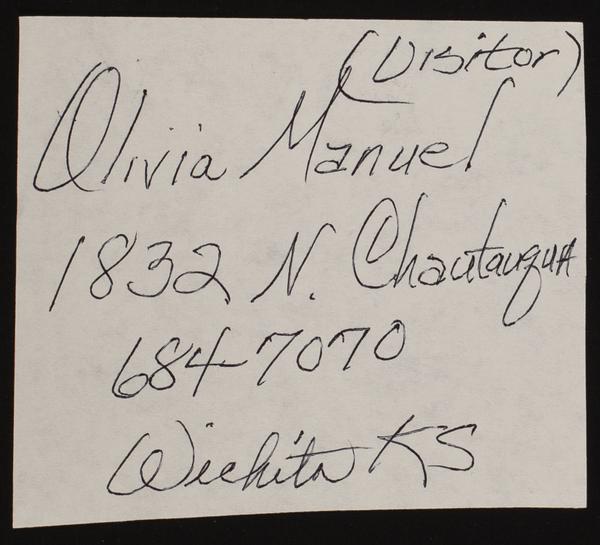 (Visitor)
Olivia Manuel
1832 N. Chautauqua
684-7070
Wichita KS